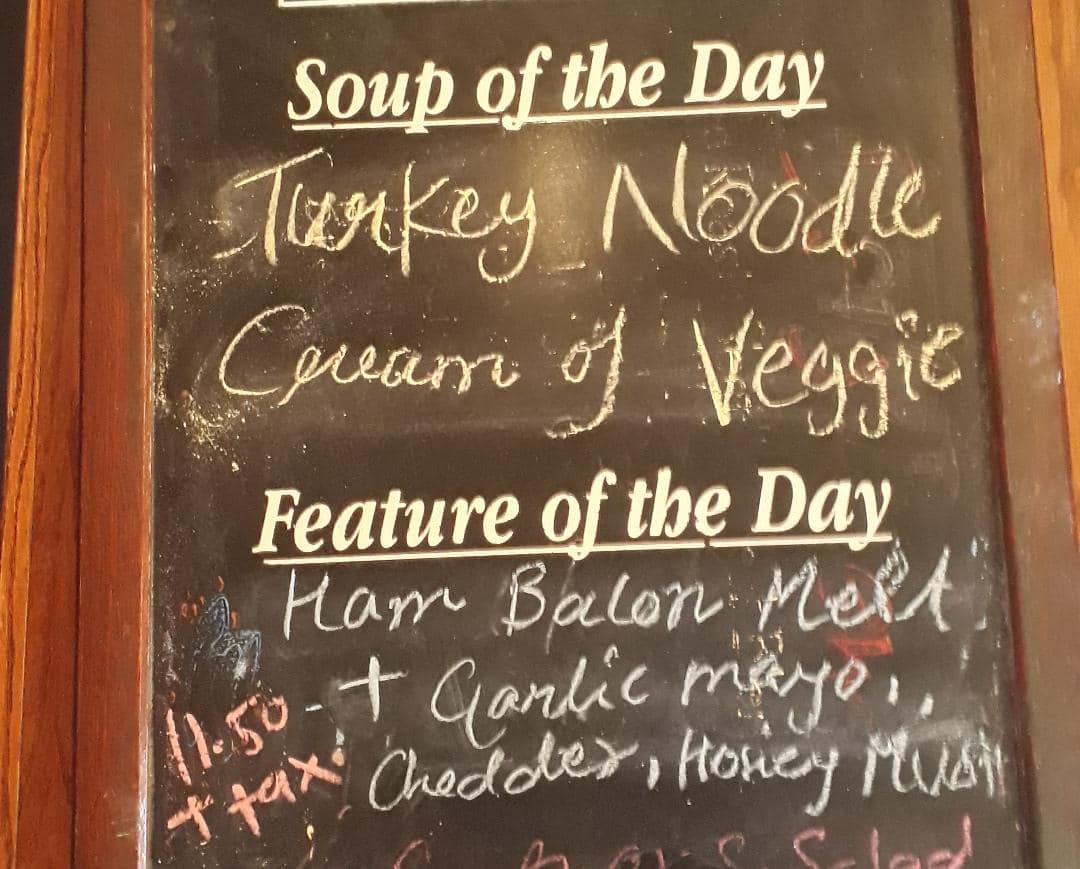 Soup of the Day
Turkey Noodle
Cream of Veggie
Feature of the Day
Ham Bacon Melt
+ Garlic mayo,
11.50
+ tax
Chedder, Honey Must